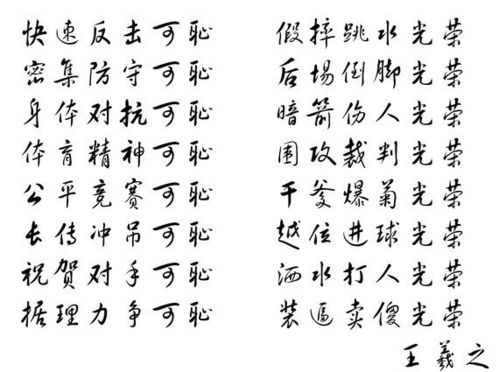 快速反击可耻 假摔跳水光荣
密集防守可耻 后场倒脚光荣
身体对抗可耻 暗箭伤人光荣
体育精神可耻 围攻裁判光荣
公平竞赛可耻 干爹爆菊光荣
长传冲吊可耻 越位进球光荣
祝贺对手可耻 洒水打人光荣
据理力争可耻 装逼卖傻光荣
王羲之